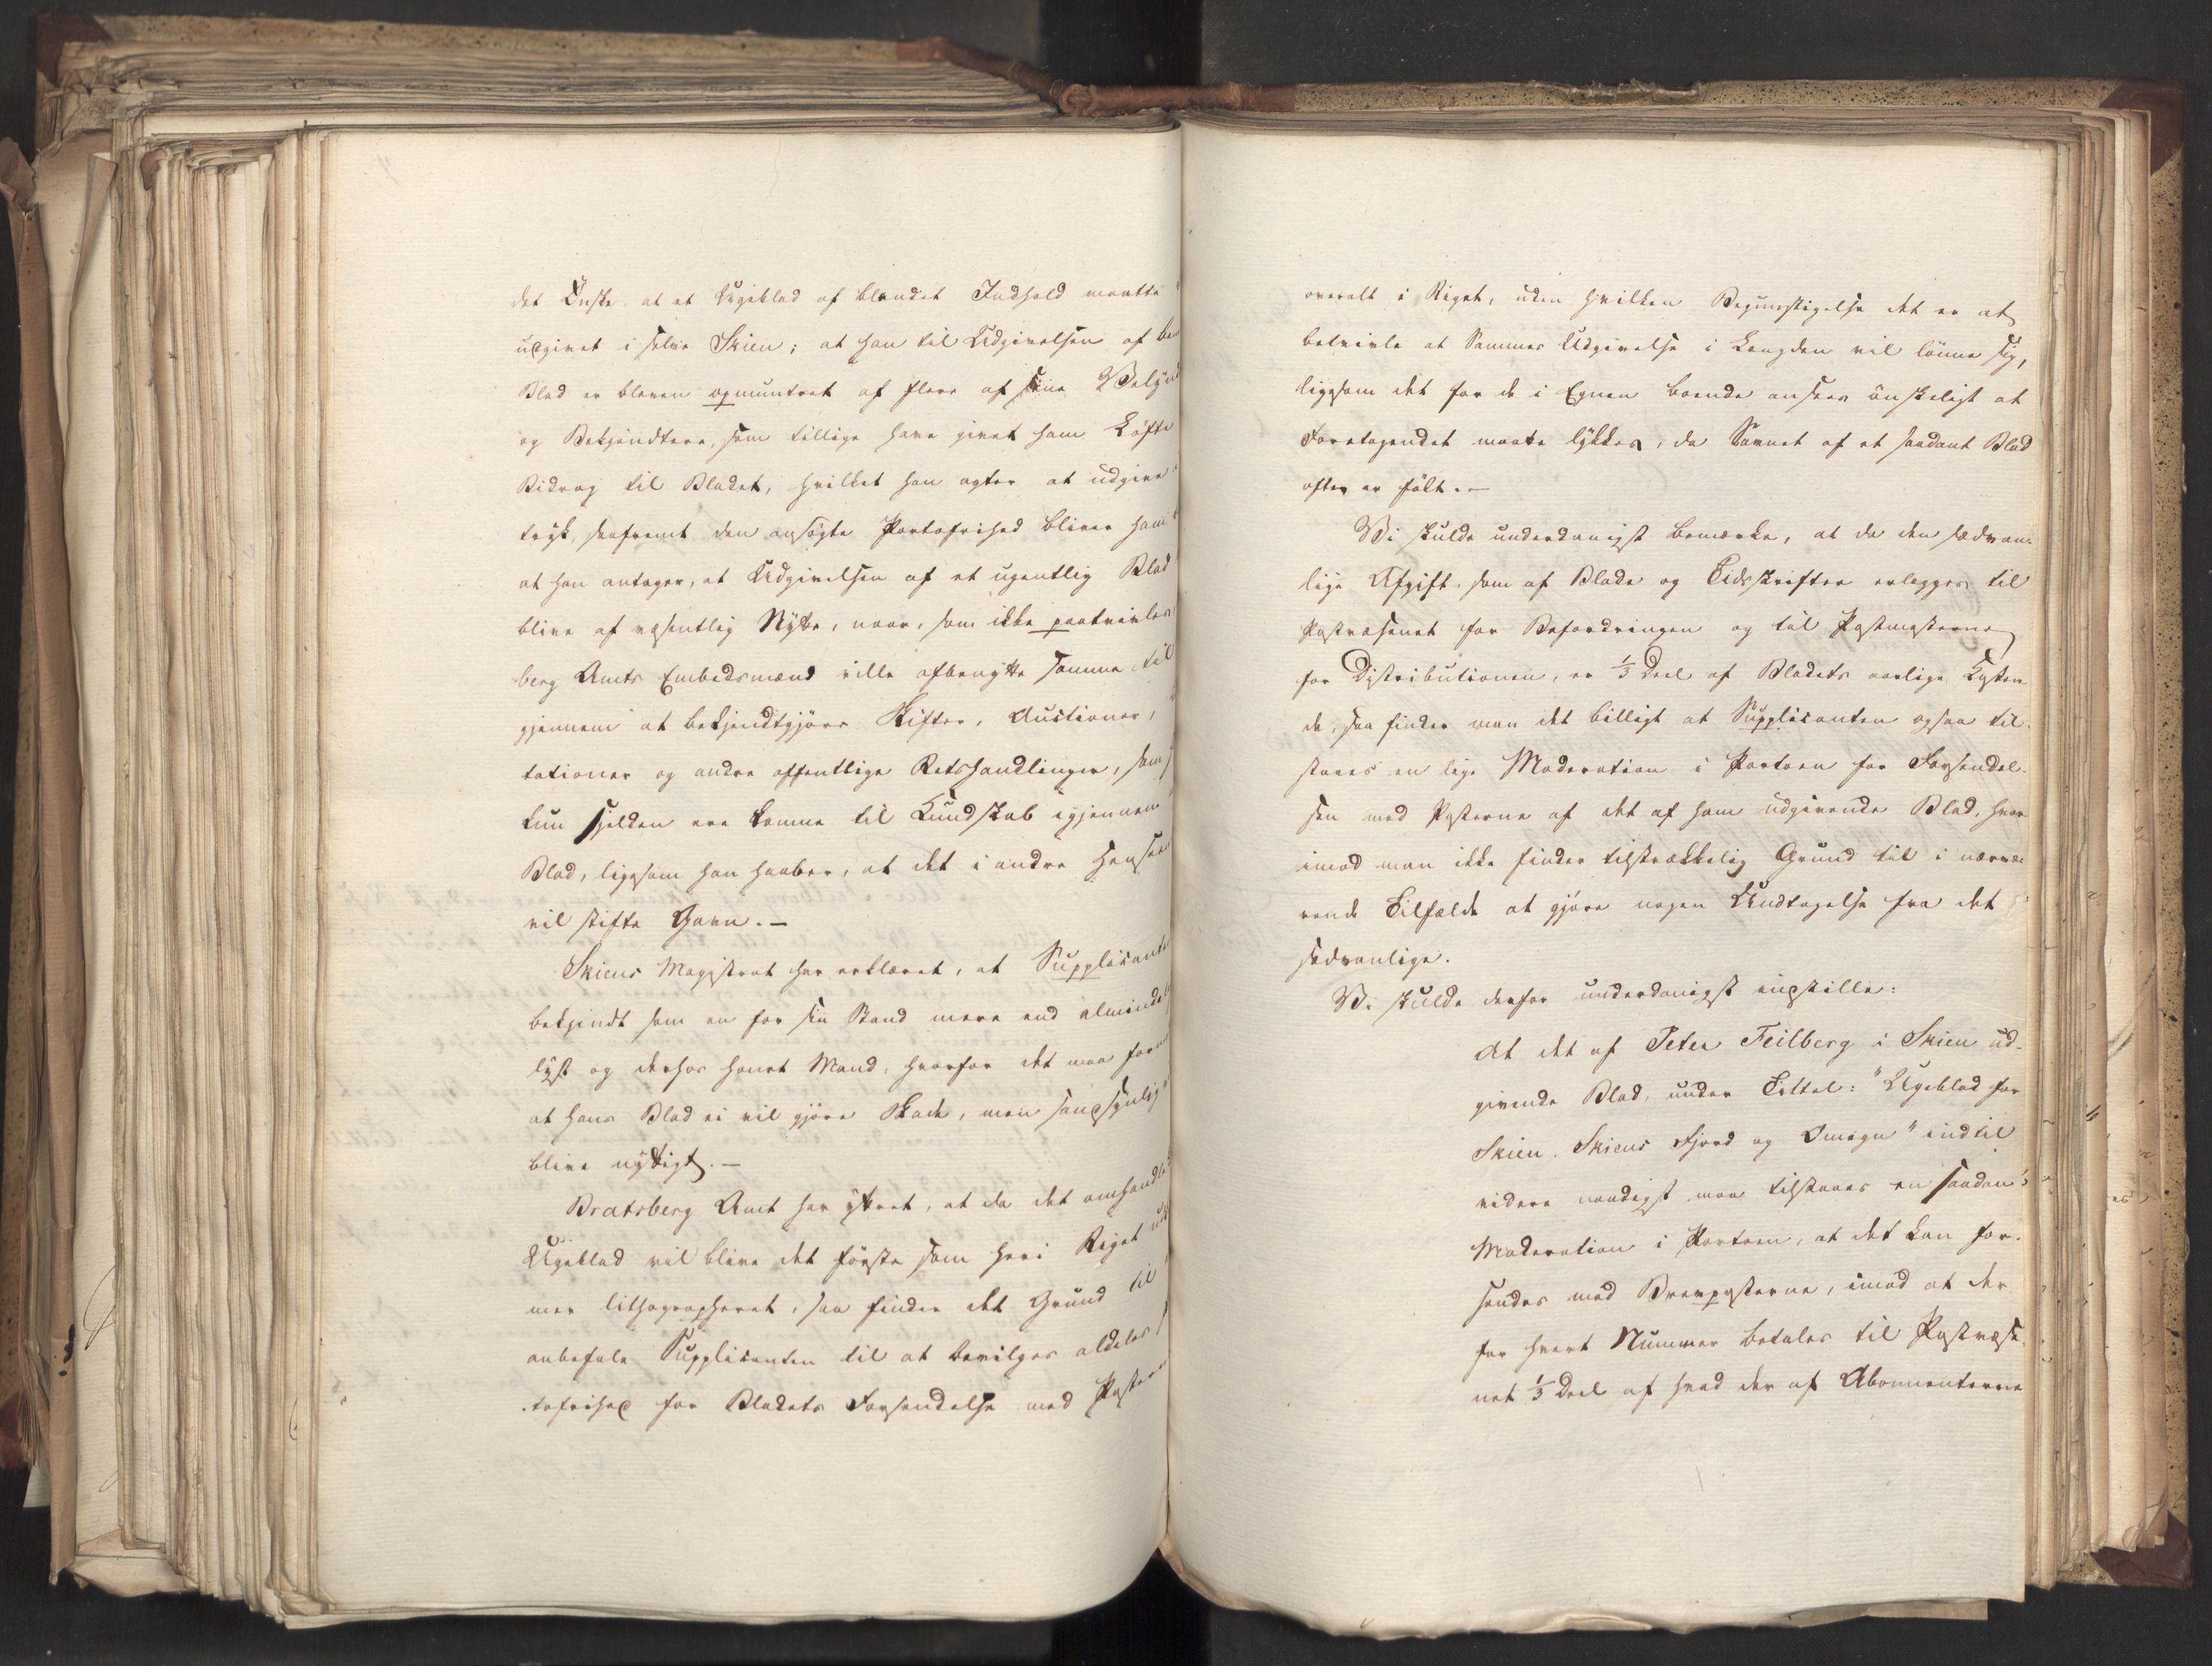 det Önske at et Ugeblad af blandet Indhold maatte
udgivet i selve Skien; at han til Udgivelsen af be
Blad er bleven opmuntret af flere af sine Velyn
og Bekjendtere, som tillige have givet ham Löfte
Bidrag til Bladet, hvilket han agter at udgive
tryk, saafremt den ansögte Portofrihed bliver ham
at han antager, at Udgivelsen af et ugentlig Blad
blive af væsentlig Nytte, naar, som ikke paatvivles
berg Amts Embedsmænd ville afbenytte samme til
gjennem at bekjendtgjöre Skifter, Auctioner,
tationer og andre offentlige Retshandlinger, som
kun sjelden ere komne til Kundskab igjennem
Blad, ligesom han haaber, at det i andre Hensee
vil stifte Gavn. —
Skiens Magistrat har erklæret, at Supplicante
bekjendt som en for sin Stand mere end almindel
lyst og derhos honet Mand, hvorfor det maa form
at hans Blad ei vil gjöre Skade, men sandsynlig
blive nyttigt. —
Bratsberg Amt har yttret, at da det omhandle
Ugeblad vil blive det förste som her i Riget ud
mer lithographeret, saa finder det Grund til
anbefale Supplicanten til at bevilges aldeles
tofrihed for Bladets Forsendelse med Posterne
overalt i Riget, uden hvilken Begunstigelse det er at
betvivle at Sammes Udgivelse i Længden vil lönne sig,
ligesom det for de i Egnen boende ansees önskeligt at
Foretagendet maatte lykkes, da Savnet af et saadant Blad
ofte er fölt. —
Vi skulde underdanigst bemærke, at da den sædvan-
lige Afgift, som af Blade og Tidsskrifter erlægges til
Postvæsenet for Befordringen og til Postmesterne
for Distributionen, er 1/3 Deel af Bladets aarlige Kosten-
de, saa finder man det billigt at Supplicanten ogsaa til-
staaes en lige Moderation i Portoen for Forsendel-
sen med Posterne af det af ham udgivende Blad, hvor-
imod man ikke finder tilstrækkelig Grund til i nærvæ-
rende Tilfælde at gjöre nogen Undtagelse fra det
sædvanlige.
Vi skulde derfor underdanigst indstille:
At det af Peter Feilberg i Skien ud-
givende Blad, under Tittel: "Ugeblad for
Skien, Skiens Fjord og Omegn" indtil
videre naadigst maa tilstaaes en saadan
Moderation i Portoen, at det kan for-
sendes med Brevposterne, imod at der
for hvert Nummer betales til Postvæse-
net 1/3 Deel af hvad der af Abonnenterne